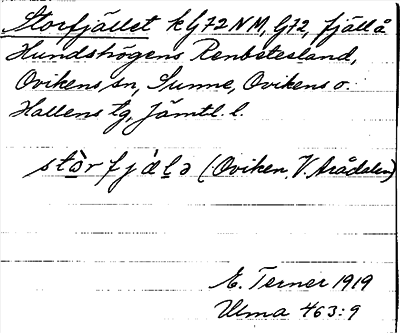 Storfjället k G72NM, G72, fjäll å
Hundshögens Renbetesland,
Ovikens sn, Sunne, Ovikens o.
Hallens tg, Jämtl. l.
stòrfjälə (Oviken, V. Arådalen)
E. Terner 1919
Ulma 463:9